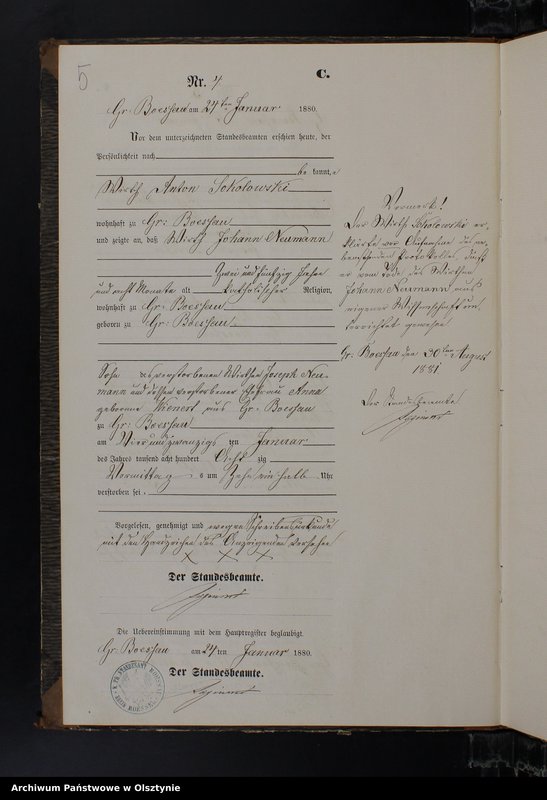 5
C.
Nr. 4
Gr. Boessau am 24ten Januar 1880.
Vor dem unterzeichneten Standesbeamten erschien heute, der
Persönlichkeit nach
be kannt,
Wirth Anton Sokolowski
wohnhaft zu Gr: Boessau
und zeigte an, daß Wirth Johann Neumann
Zwei und fünfzig Jahre
und acht Monate alt katholischer Religion,
wohnhaft zu Gr: Boessau
geboren zu Gr: Boessau
Sohn des verstorbenen Wirthen Joseph Neu-
mann und dessen verstorbener Ehefrau Anna
geborene Kienert aus Gr. Boessau
zu Gr: Boessau
am Vier und zwanzigs ten Januar
des Jahres tausend acht hundert Acht zig
Vormittag s um Zehn ein halb Uhr
verstorben sei.
Vorgelesen, genehmigt und wegen Schreibensunkunde
mit den Handzeichen des Anzeigenden versehen
X X X
Der Standesbeamte.
Die Uebereinstimmung mit dem Hauptregister beglaubigt
Gr. Boessau am 24 ten Januar 1880.
Der Standesbeamte.
Vermerk!
Der Wirth Sokolowski er-
klärte vor Aufnahme des ne-
benstehenden Protokolls, daß
er vom Tode des Wirthen
Johann Neumann aus
eigener Wissenschaft un-
terrichtet gewesen
Gr: Boessau den 30ten August
1881
Der Standesbeamte
Archiwum Państwowe w Olsztynie